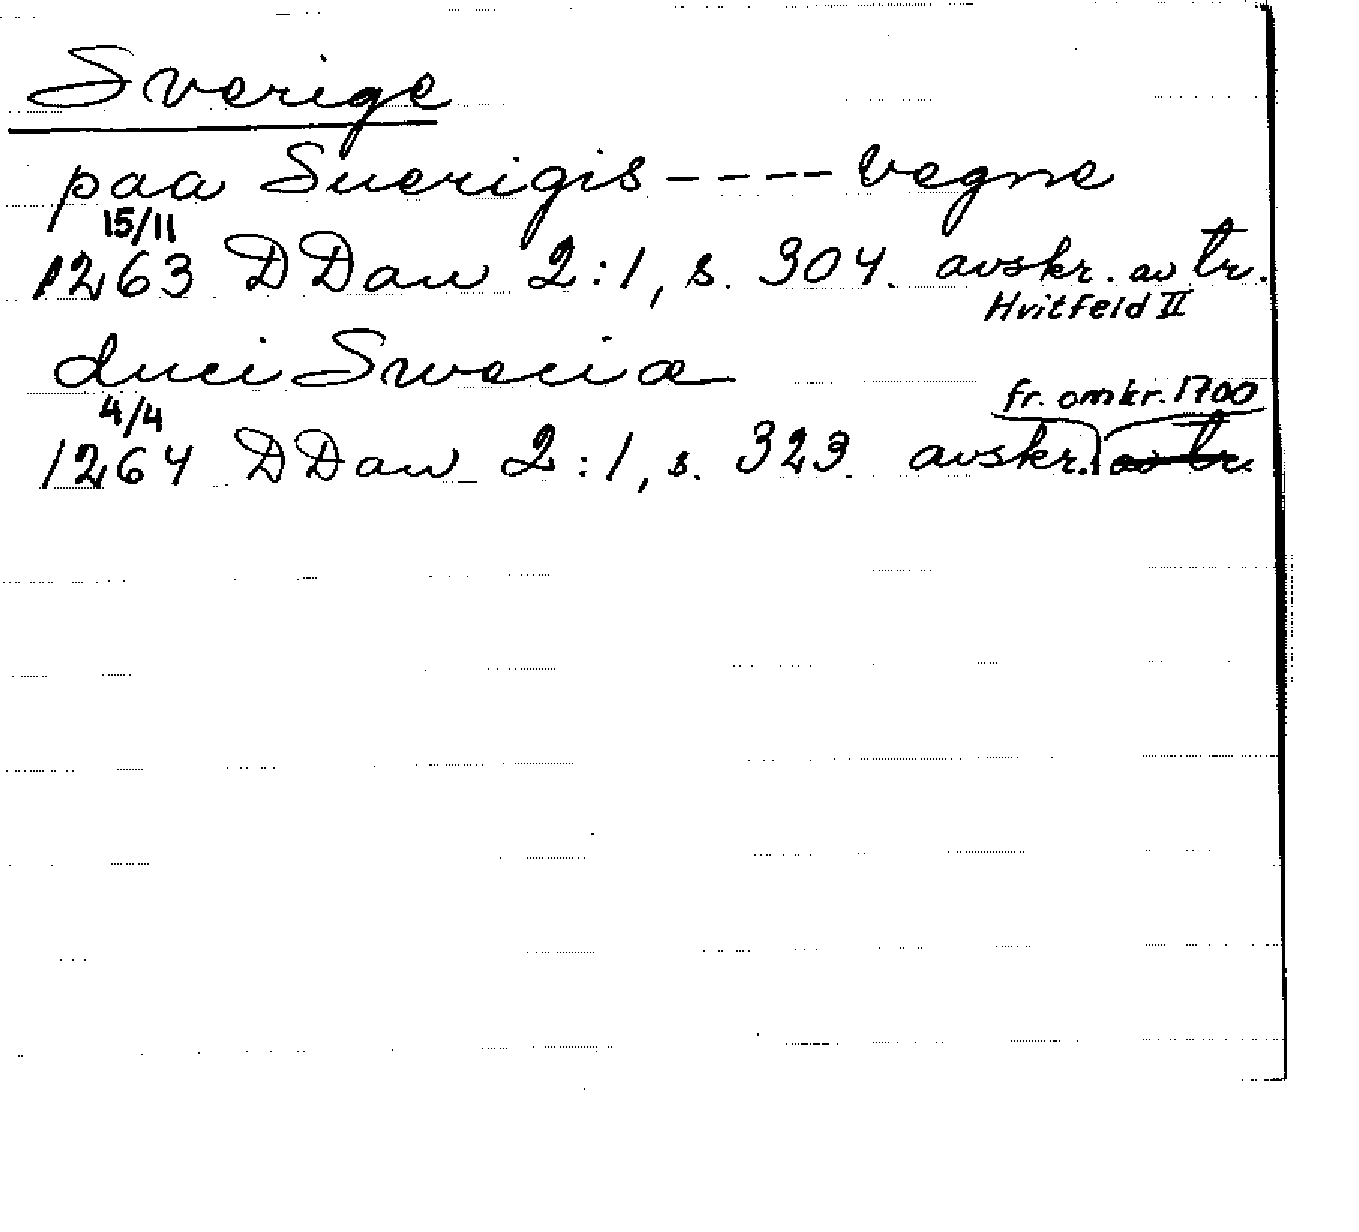 Sverige
paa Suerigis ---- vegne
15/11
1263 DDan 2:1, s. 304. avskr. av tr.
Hvitfeld II
duci Sweciæ
4/4 fr. omkr. 1700
1264 DDan 2:1, s. 323. avskr. av tr.